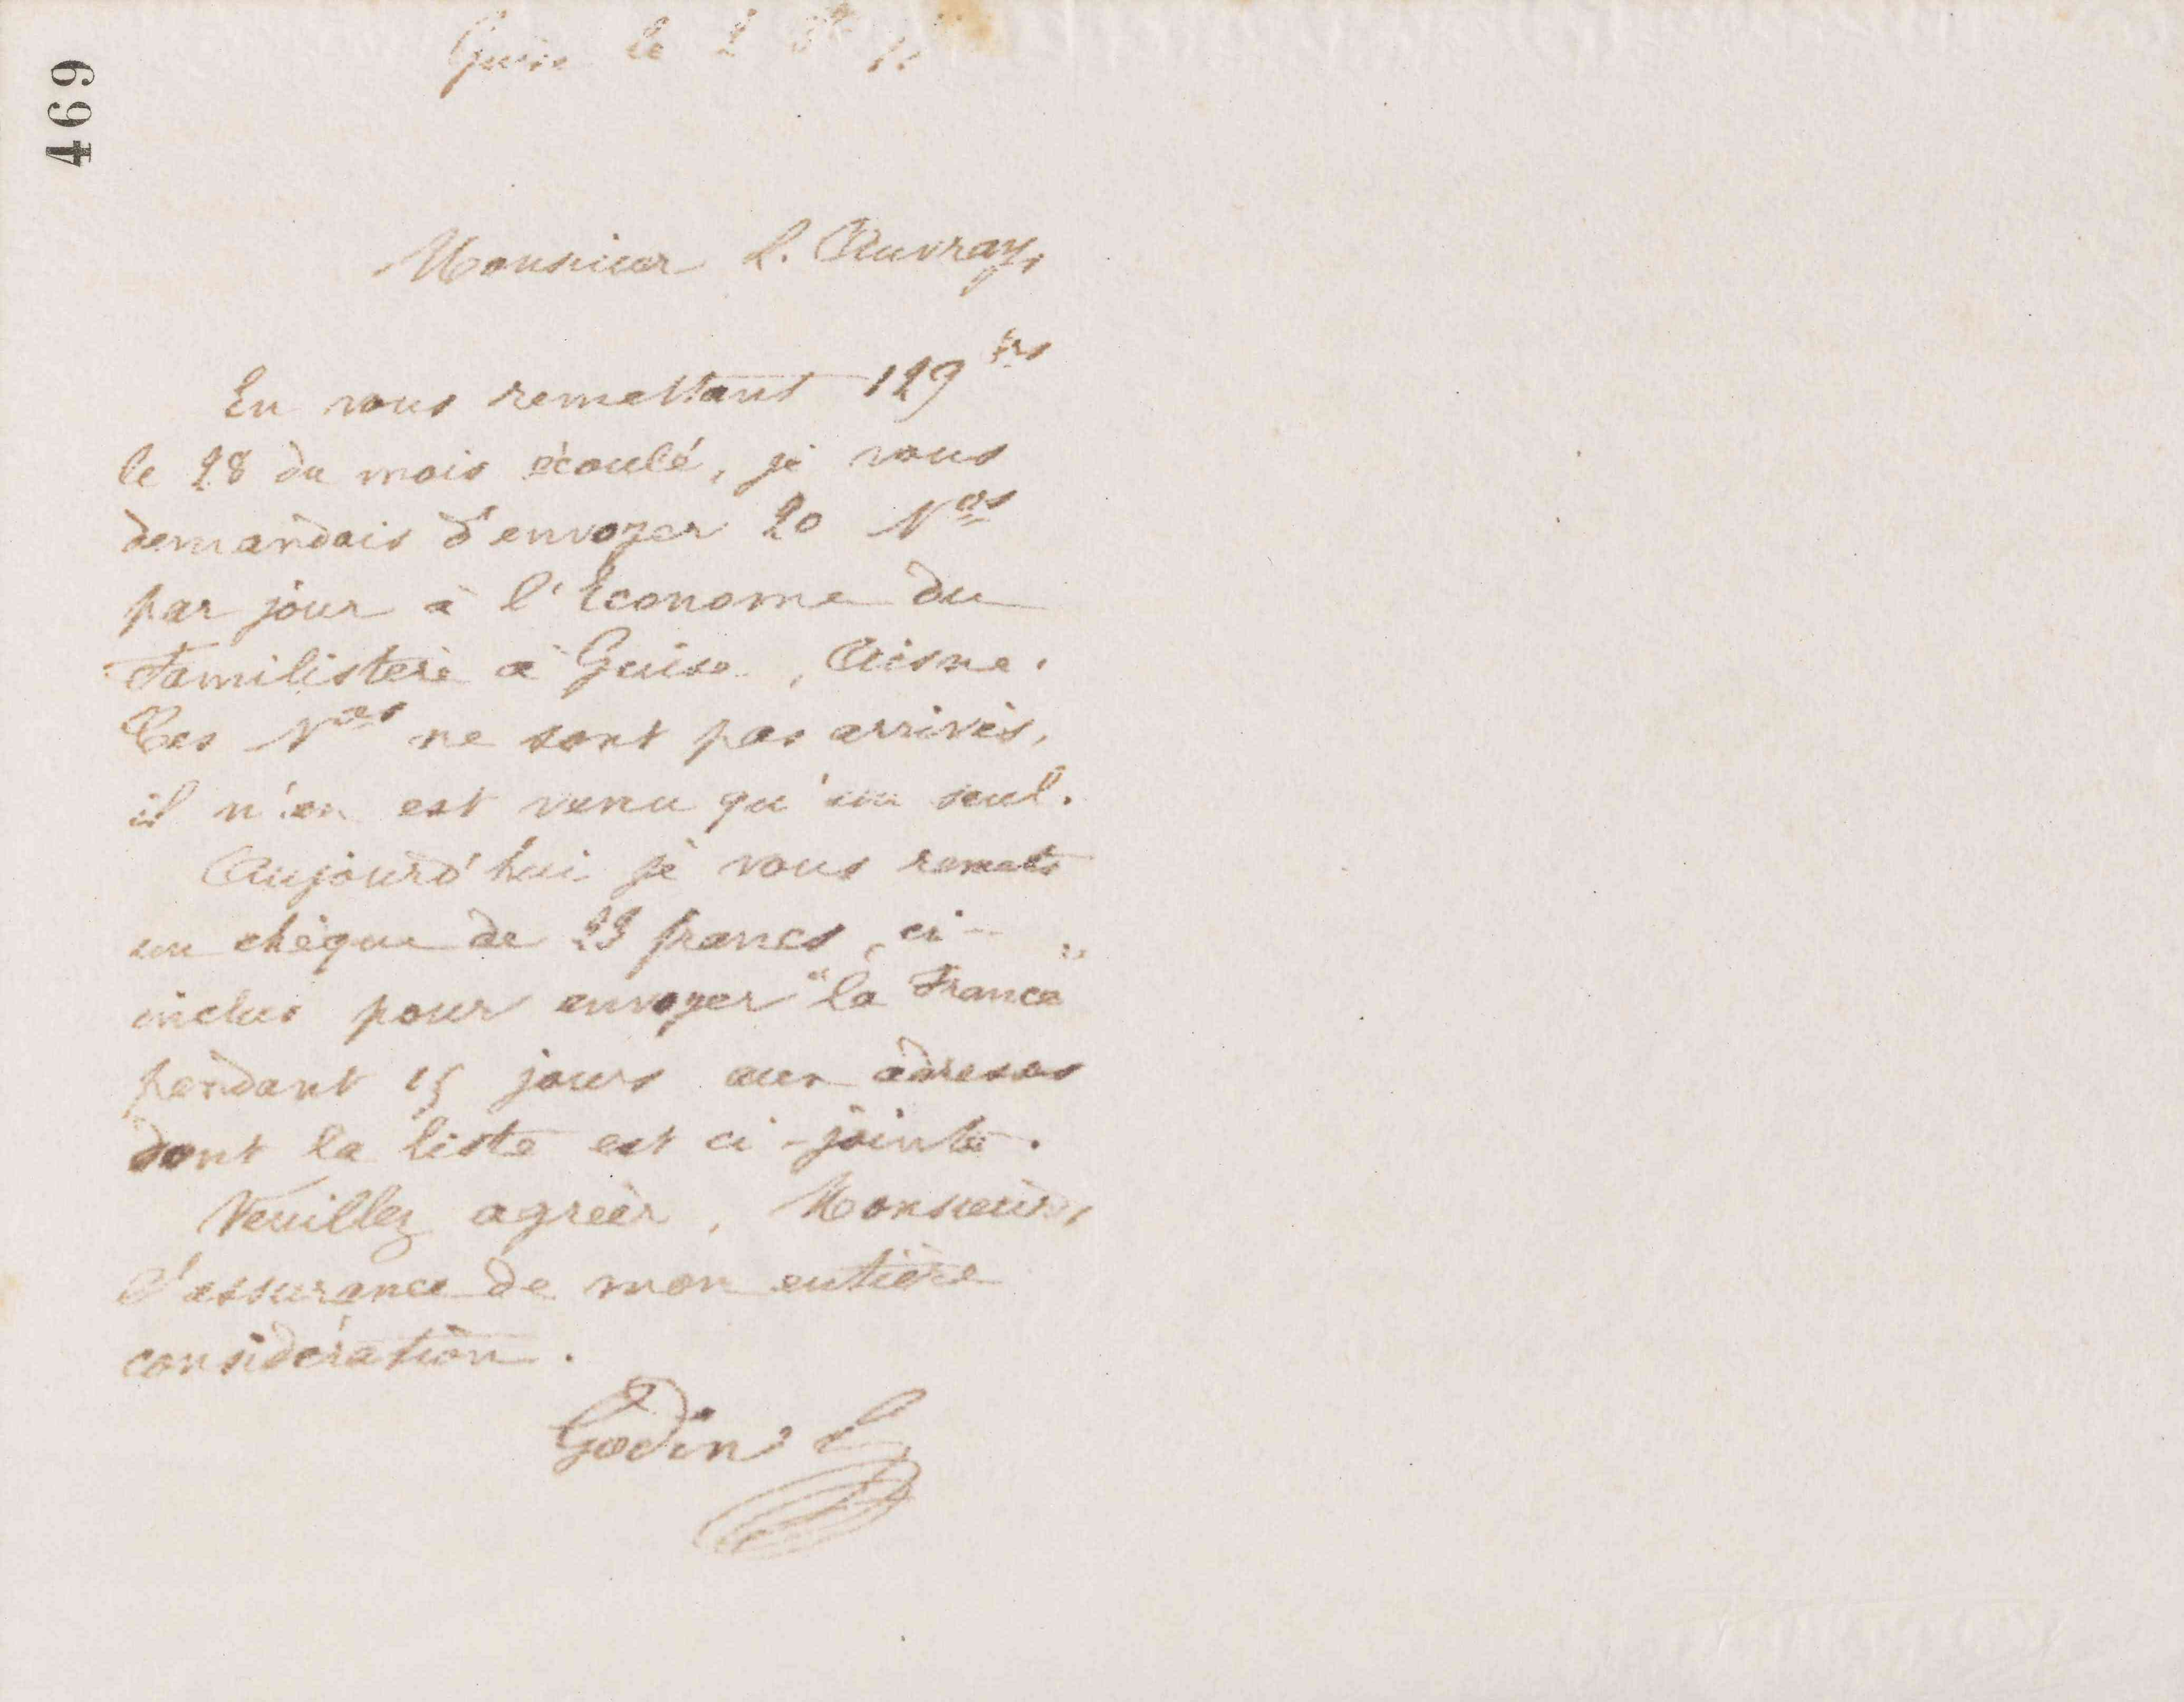 469
Guise le 2
Monsieur L. Auvray,
En vous remettant 129 frs
le 28 du mois écoulé, je vous
demandais d'envoyer 20 Nos
par jour à l'Econome du
Familistère à Guise, Aisne.
Ces Nos ne sont pas arrivés,
il n'en est venu qu'un seul.
Aujourd'hui je vous remets
un chèque de francs, ci-
inclus pour envoyer "la France"
pendant 15 jours aux adresses
dont la liste est ci-jointe.
Veuillez agréer, Monsieur,
l'assurance de mon entière
considération.
Godin